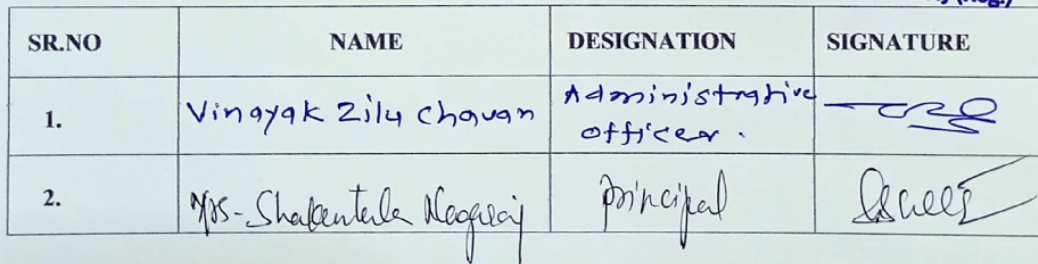 SR.NO NAME DESIGNATION SIGNATURE
1. Vinayak Zilu Chavan Administrative
officer.
2. Mrs-Shakentala Nagaraj Principal